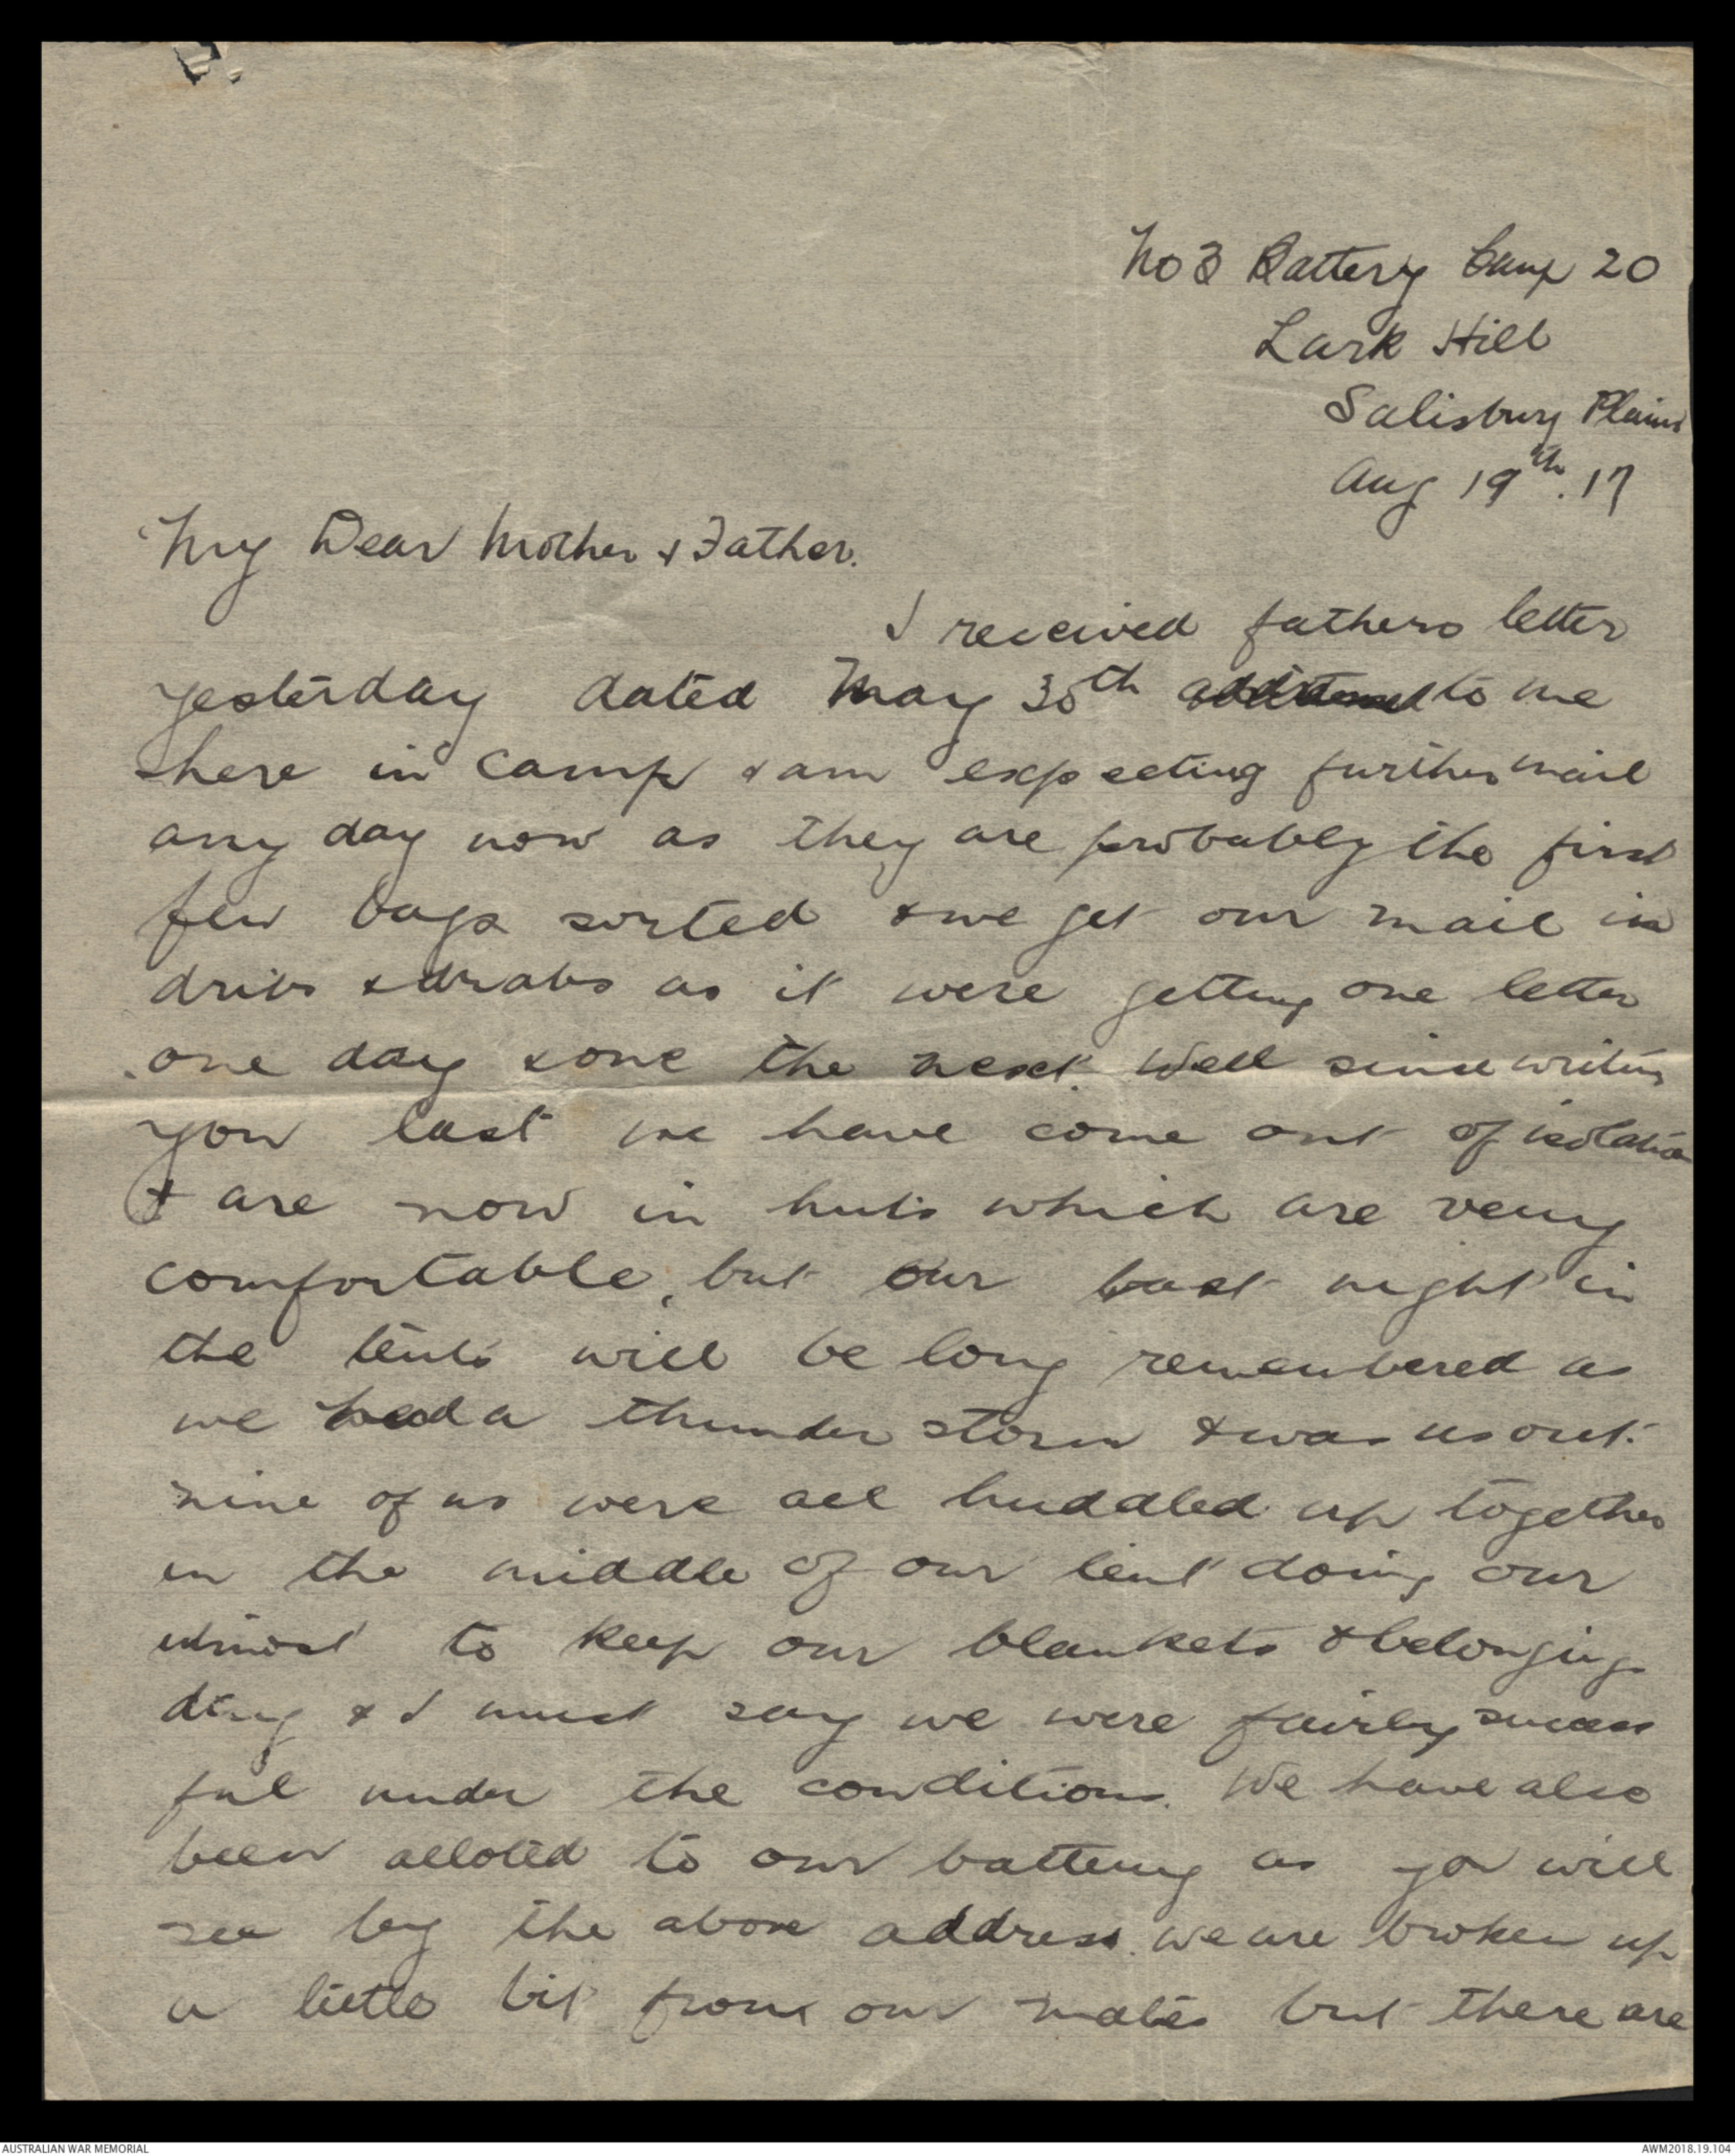 No 3 Battery Camp 20
Lark Hill
Salisbury Plains
Aug 19th. 17
My Dear Mother & Father.
I received fathers letter
yesterday dated May 30th to me
here in camp & am expecting further mail
any day now as they are probably the first
few bags sorted & we get our mail in
dribs & drabs as it were getting one letter
one day & one the next. Well since writing
you last we have come out of isolation
& are now in huts which are very
comfortable, but our last night in
the tents will be long remembered as
we had a thunder storm & was us out.
nine of us were all huddled up together
in the middle of our tent doing our
utmost to keep our blankets & belongings
dry & I must say we were fairly success
ful under the conditions. We have also
been alloted to our battery as you will
see by the above address. we are broken up
a little bit from our mates but there are
AUSTRALIAN WAR MEMORIAL
AWM2018.19.104